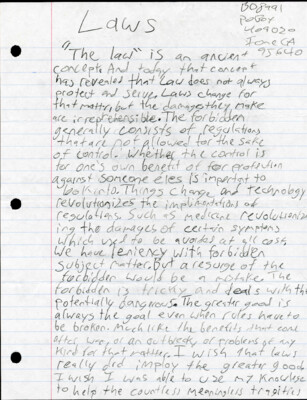 Laws
BO8991
POBOX
409020
Ione CA
95640
"The law" is an ancient
concept. And today that concept
has revealed that Law does not always
protect and serve. Laws change for
that matter, but the damages they make
are irreprehensible. The forbidden
generally consists of regulations
that are not allowed for the sake
of control. Whether the control is
for one's own benefit or for protection
against someone else is important to
look into. Things change and technology
revolutionizes the implications of
regulations. Such as medicine revolutioniz
ing the damages of certain symptoms
which used to be avoided at all cost.
We have leniency with forbidden
subject matter, but a of the
forbidden would be a mistake. The
forbidden is tricky and deals with the
potentially dangerous. The greater good is
always the goal even when rules have to
be broken. Much like the benefits that come
after war, or an outbreak, or problems of any
kind for that matter. I wish that laws
really did imploy the greater good.
I wish I was able to use my knowlege
to help the countless meaningless tragities